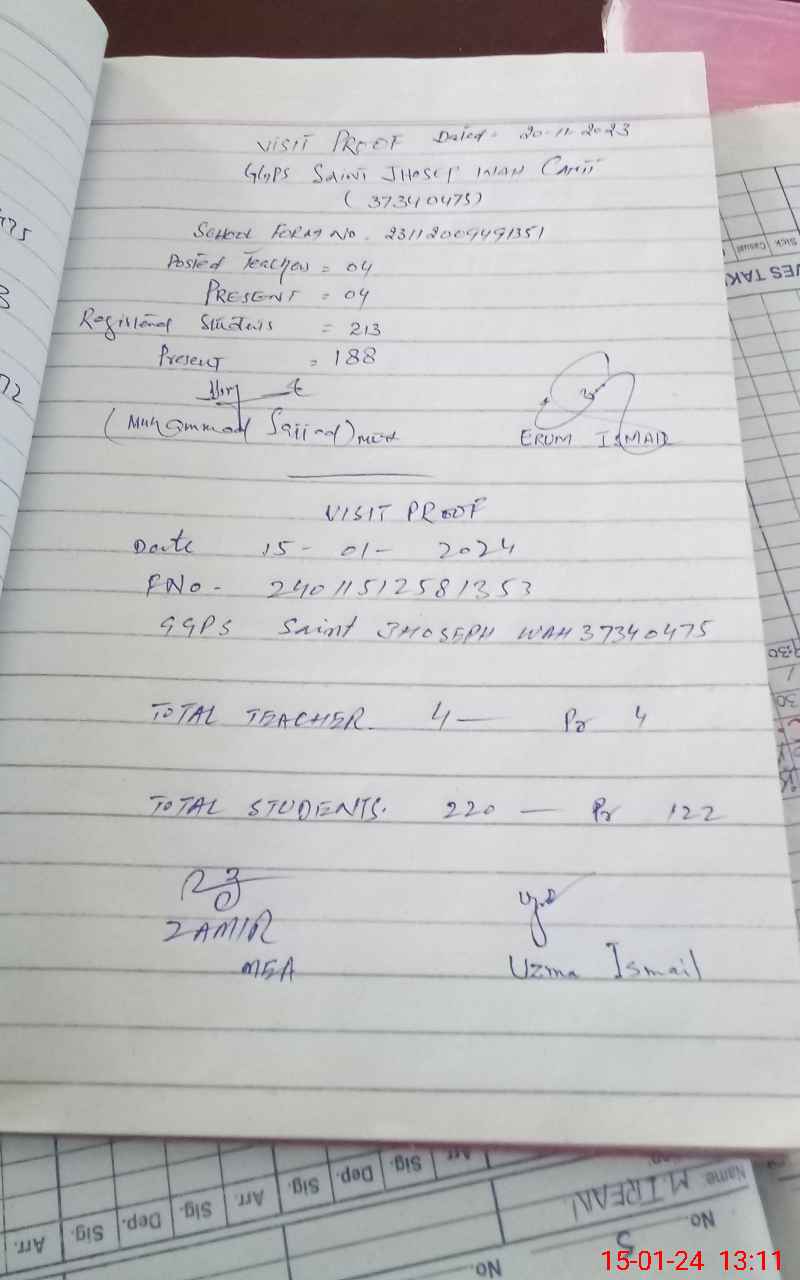 VISIT PROOF Dated: 20-11-2023
GGPS SAINT JHOSEP WAH CANTT
(37340475)
SCHOOL FORM NO. 23112009491351
Posted Teacher = 04
PRESENT = 04
Registered Students = 213
Present = 188
(Muhammad Sajjad) MEA
ERUM ISMAIL
VISIT PROOF
Date 15-01-2024
FNo- 24011512581353
GGPS Saint JHOSEPH WAH 37340475
TOTAL TEACHER. 4 — Pr 4
TOTAL STUDENTS. 220 — Pr 122
ZAMIR
MEA
Uzma Ismail
Sick Casual
VES TAK
Arr. Sig. Dep. Sig. Arr Sig. Dep Sig. Arr
Name M. IRFAN
No. 5
No
15-01-24 13:11